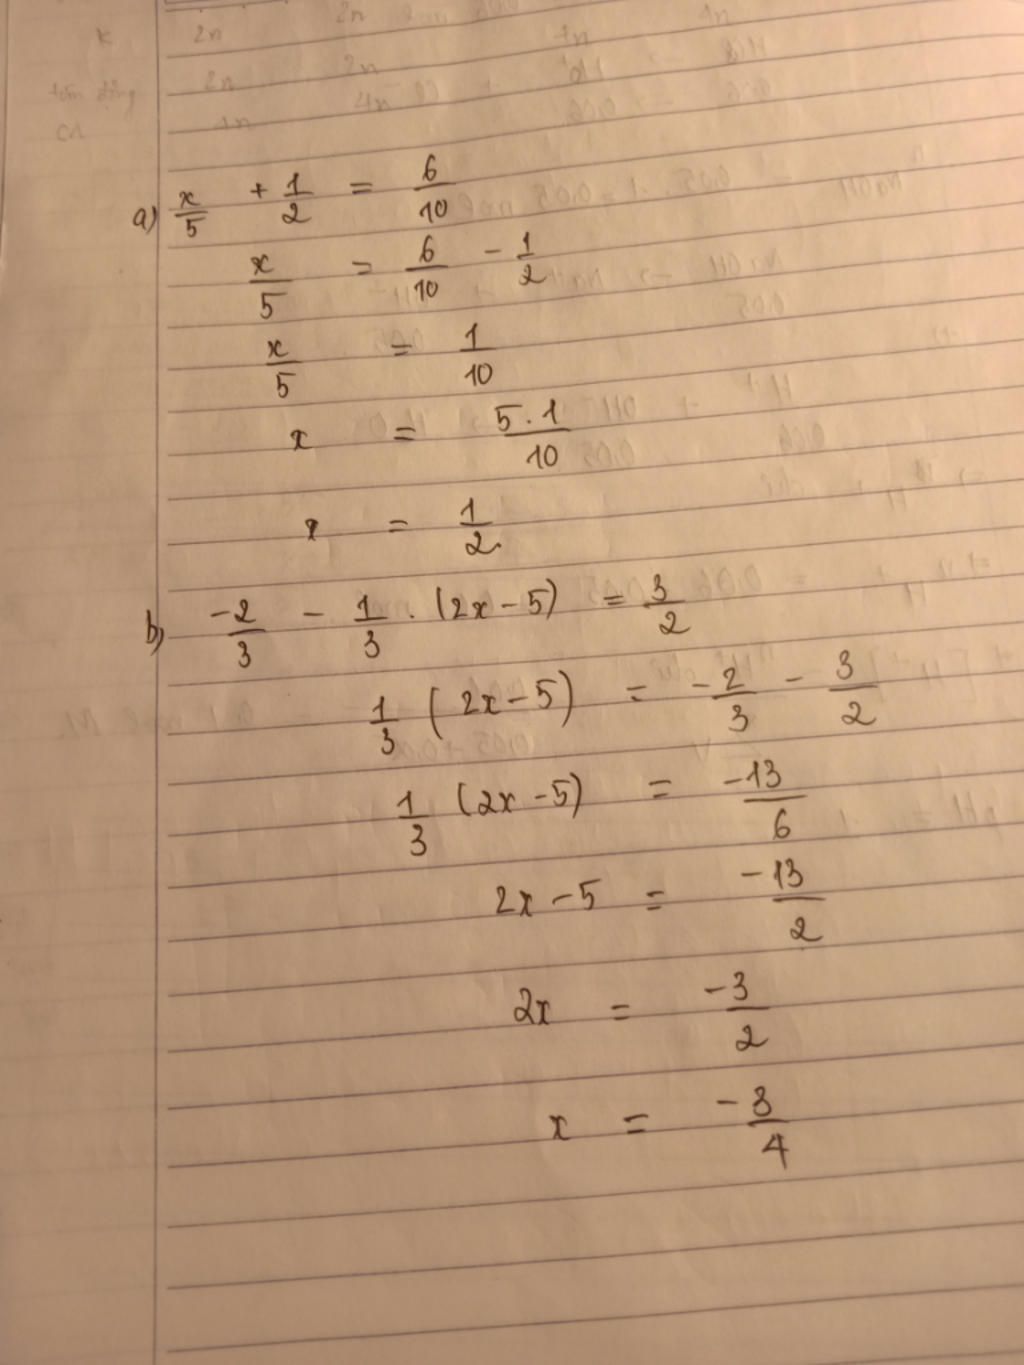 a) x/5 + 1/2 = 6/10
x/5 = 6/10 - 1/2
x/5 = 1/10
x = 5.1/10
x = 1/2
b) -2/3 - 1/3 . (2x-5) = 3/2
1/3 (2x-5) = -2/3 - 3/2
1/3 (2x-5) = -13/6
2x-5 = -13/2
2x = -3/2
x = -3/4